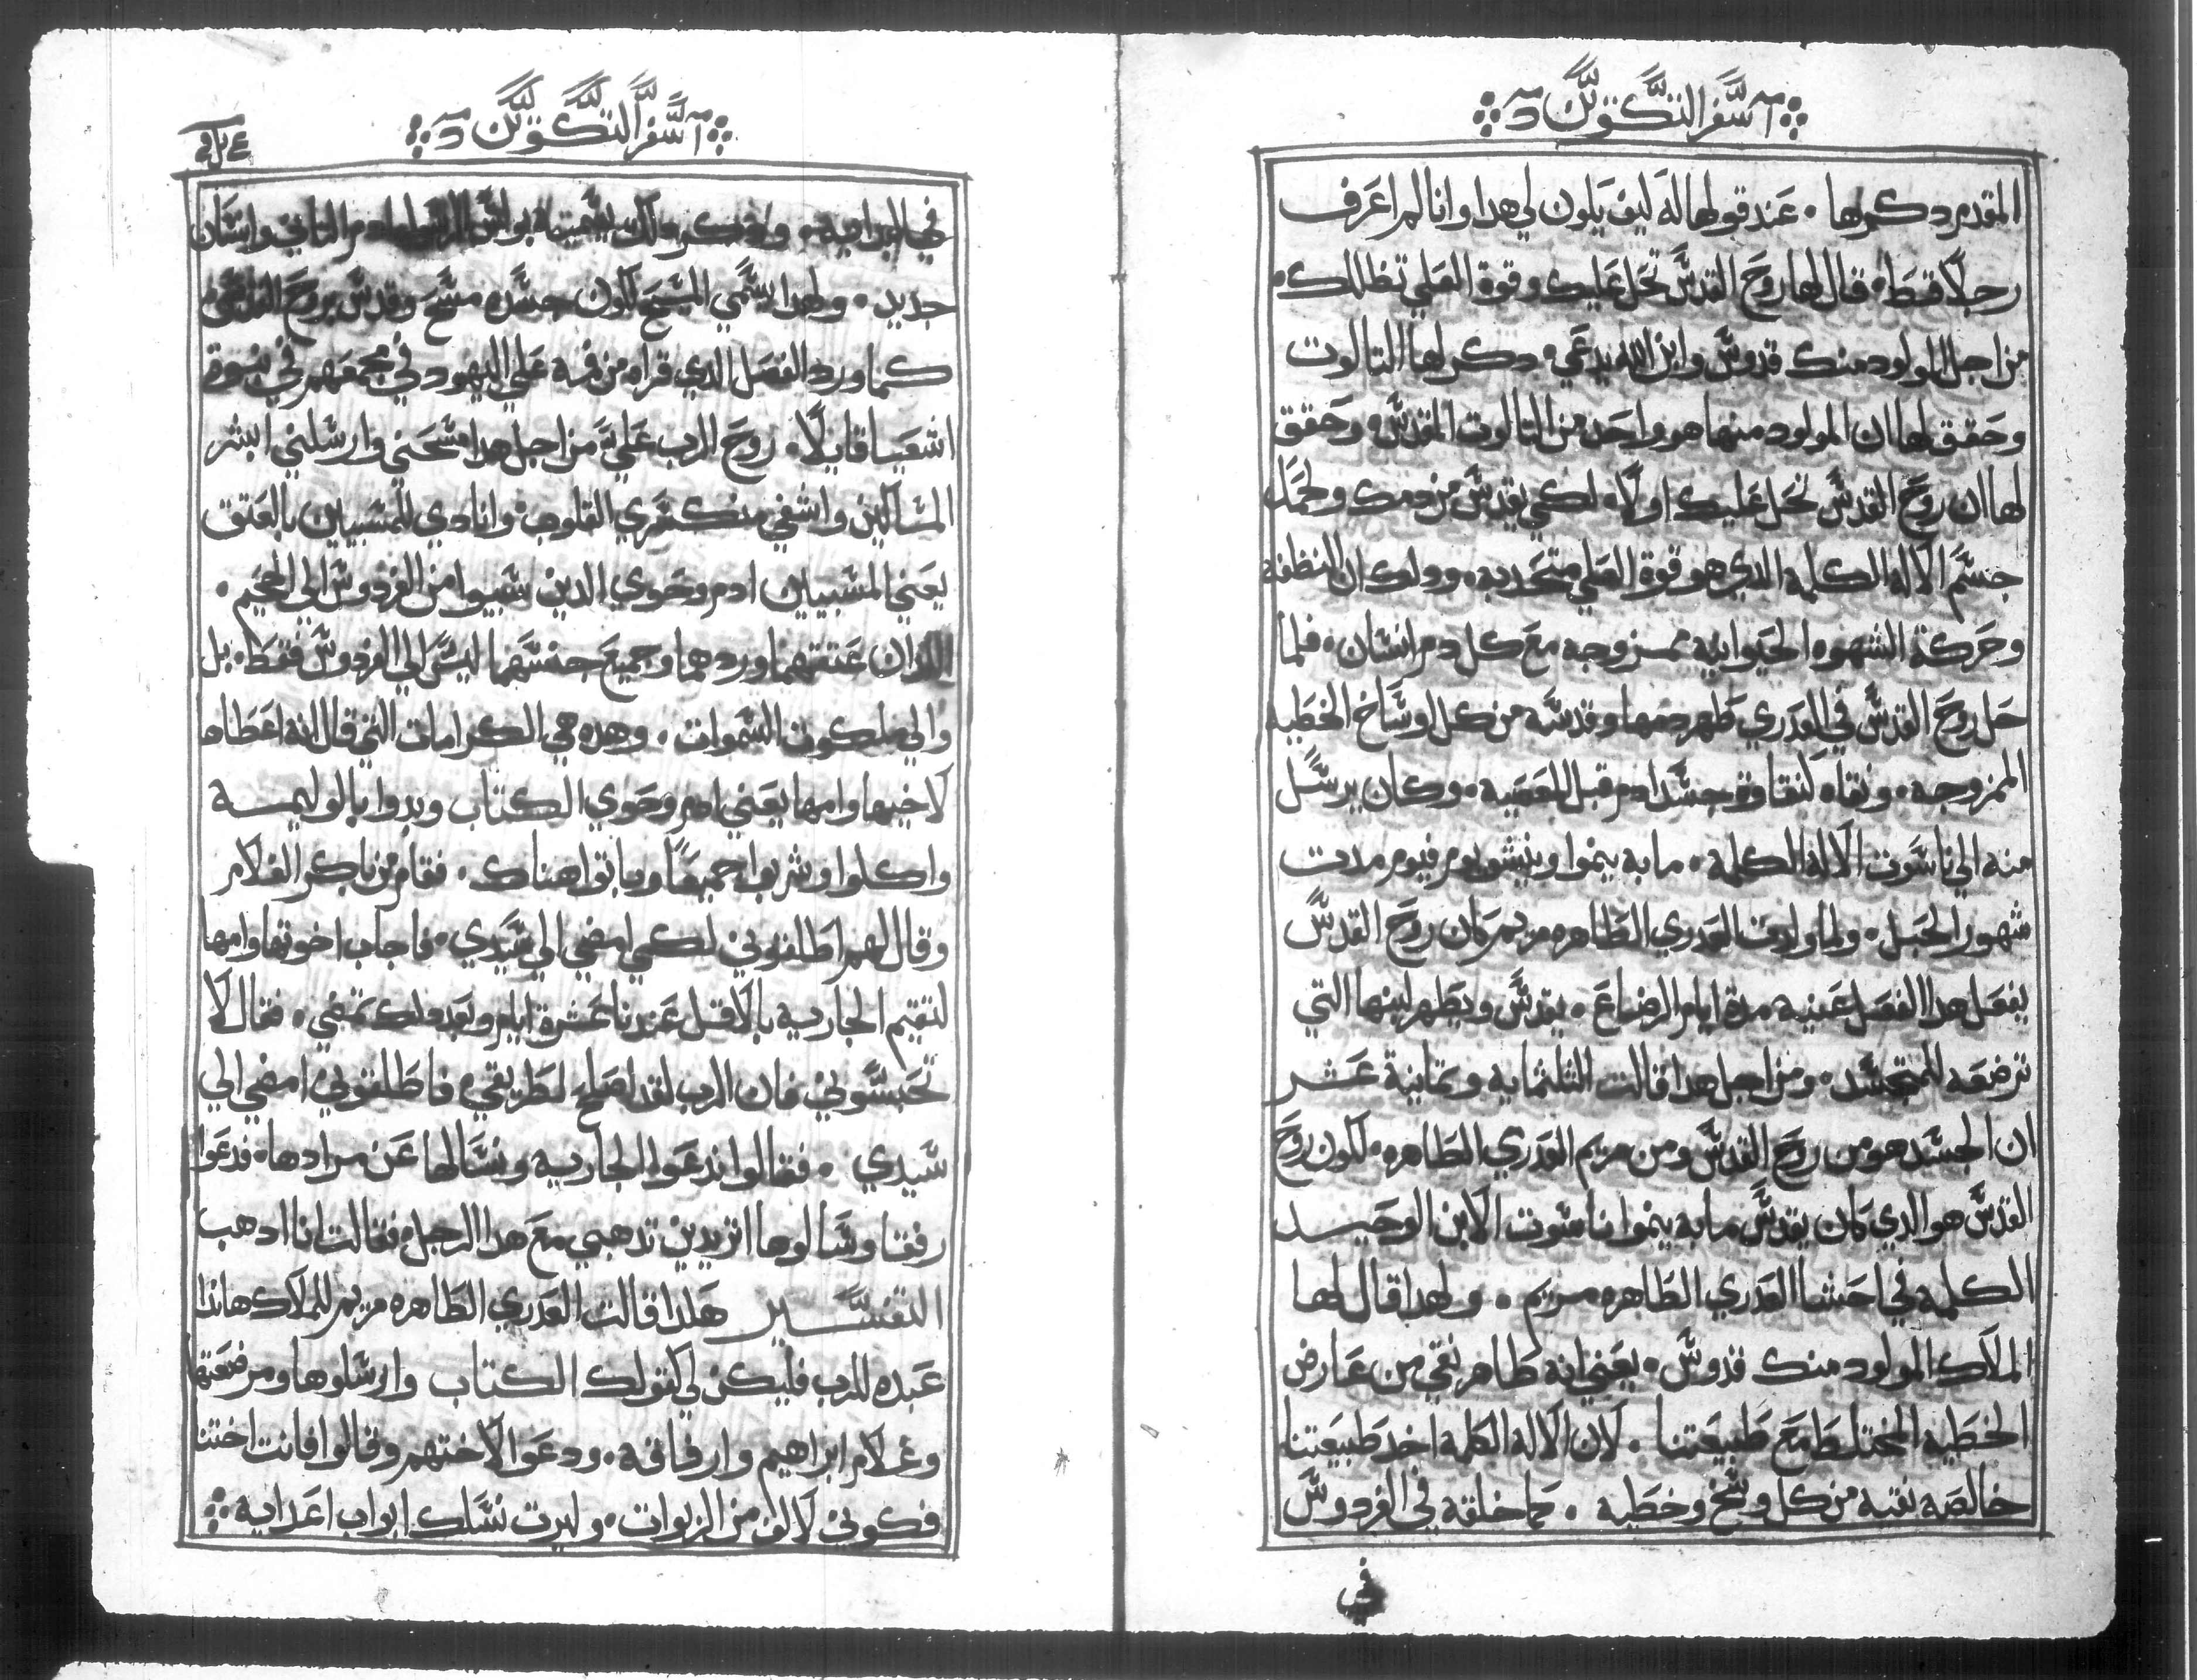 سفر التكوين
المقدم دكرها. عند قولها له ليف يلون لي هدا وانا لم اعرف
رجلا قط. قال لها روح القدس تحل عليك وقوة العلي تظللك.
من اجل المولود منك قدوس وابن الله يدعي. دكر لها التالوت
وحقق لها ان المولود منها هو واحد من التالوت المقدس. وحقق
لها ان روح القدس تحل عليك اولا. لكي يقدس من دمك ولحمك
جسم الاله الكلمه الدي هو قوة العلي متحد به. ودلك ان النطفه
وحركة الشهوه الحيوانيه ممزوجه مع كل دم انسان. فلما
حل روح القدس في العدري طهر دمها وقدسه من كل اوساخ الخطيه
الممزوجه. ونقاه كنقاوة جسد ادم قبل المعصيه. وكان يرسل
منه الي ناسوت الاله الكلمة. ما به ينموا وينشو يوم فيوم مدت
شهور الحبل. ولما ولدت العدري الطاهره مريم كان روح القدس
يفعل هدا الفعل عينه مدة ايام الرضاع. يقدس ويطهر لبنها التي
ترضعه للمتجسد. ومن اجل هدا قالت التلتمايه وتمانية عشر
ان الجسد هو من روح القدس ومن مريم العدري الطاهره. لكون روح
القدس هو الدي كان يقدس ما به ينموا ناسوت الابن الوحيد
الكلمه في احشا العدري الطاهره مريم. ولهدا قال لها
الملاك المولود منك قدوس. يعني انه طاهر نقي من عارض
الخطيه المختلطه مع طبيعتنا. لان الاله الكلمة اخد طبيعتنا
خالصه نقيه من كل وسخ وخطيه. كما خلقه في الفردوس
في
سفر التكوين
في البداية. ولدلك يسميه بولس الرسول ادم التاني وانسان
جديد. ولهدا سمي المسيح لكون جسده مسح وقدس بروح القدس
كما ورد الفصل الدي قراه من فمه علي اليهود في مجمعهم في نبوة
اشعيا قايلا. روح الرب علي من اجل هدا مسحني وارسلني ابشر
المسالين واشفي منكسري القلوب. وانادي للمسبيين بالعتق
يعني المسبيين ادم وحوي الدين سبيوا من الفردوس الي الجحيم.
اللدان عتقهما وردهما وجميع جنسهما ليس الي الفردوس فقط. بل
والي ملكوت السموات. وهده هي الكرامات التي قال انه اعطاها
لاخيها وامها يعني ادم وحوي الكتاب وبدوا بالوليمه
واكلوا وشربوا جميعا وباتوا هناك. فقام من باكر الغلام
وقال لهم اطلقوني لكي امضي الي سيدي. فاجاب اخوتها وامها
لتقيم الجاريه بالاقل عندنا عشرة ايام وبعد دلك تمضي. فقال لا
تحبسوني فان الرب لقد اصلح لطريقي. فاطلقوني امضي الي
سيدي. فقالوا ندعوا الجاريه ونسالها عن مرادها. فدعوا
رفقا وسالوها اتريدين تدهبي مع هدا الرجل. فقالت انا ادهب
التفسير هلدا قالت العدري الطاهره مريم للملاك هاندا
عبده للرب فليكن لي كقولك الكتاب وارسلوها ومرضعتها
وغلام ابراهيم وارفاقه. ودعوا لاختهم وقالوا فانت اختنا
فكوني لالف من الربوات. وليرت نسلك ابواب اعدايه.